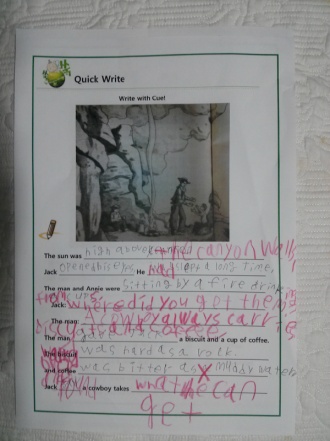 Quick Write
Write with Cue!
The sun was high above the canyon walls
Jack opened his eyes He had slept a long time.
The man and Annie were sitting by a fire
from cups.
Jack: where did you get the
The man: cowboy always carries
biscuits and coffee.
The man a biscuit and a cup of coffee.
The biscuit was hard as a rock
and coffee was bitter as muddy water
Jack found a cowboy takes what he can
get